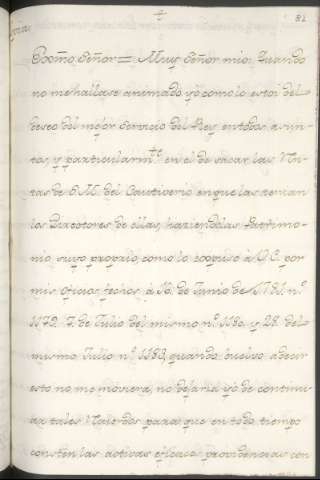 81
Exmo. Señor = Muy Señor mio: Quando
no me hallase animado yo como lo estoi del
deseo del mejor Servicio del Rey en todos asun-
tos, y particularmte. en el de sacar las Rn-
tas de S.M. del Cautiverio en que las tenian
los Directores de ellas, haziendolas Patrimo-
nio suyo proprio, como lo expuse à V.E. por
mis oficios fechos à 16. de Junio de 1781. n.º
1179. 7. de Julio del mismo n.º 1180. y 28. del
mismo Julio n.º 1183, quando buelvo à decir
esto no me moviera, no dejaria yo de continu-
ar tales Recuerdos para que en todo tiempo
consten las activas eficaces providencias con